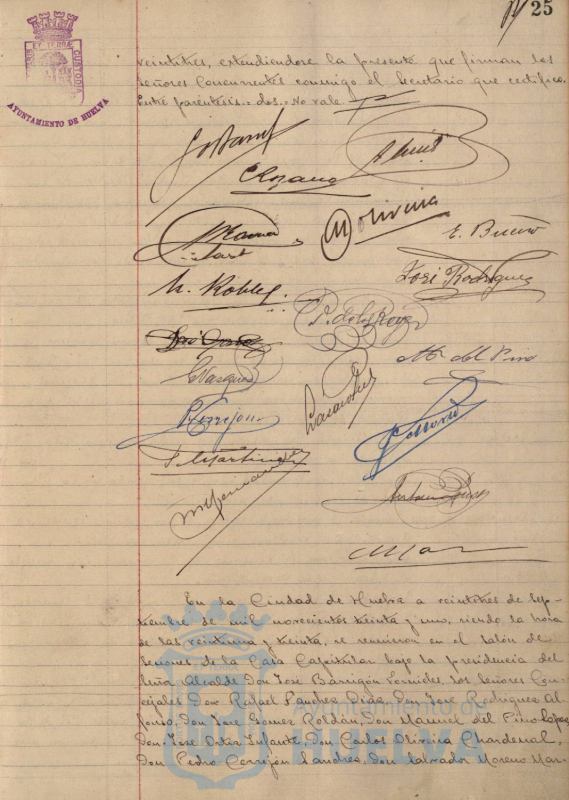 25
AYUNTAMIENTO DE HUELVA
veintitres, extendiendose la presente que firman los
Señores Concurrentes conmigo el Secretario que certifico.
Entre parentesis.= dos.= No vale.
C Lozano
M Oliveira
E. Bueno
h. Robles
José Rodriguez
P. de los Reyes
E Vasquez
M. del Pino
P Cerrejon
F. Martinez
M Hernandez
En la Ciudad de Huelva a veintitres de Sep-
tiembre de mil novecientos treinta y uno, siendo la hora
de las veintiuna y treinta, se reunieron en el salón de
Sesiones de la Casa Capitular bajo la presidencia del
Señor Alcalde Don José Barrigón Fornieles, los Señores Con-
cejales Don Rafael Sanchez Diaz, Don José Rodriguez Al
fonso, Don José Gomez Roldán, Don Manuel del Pino López
Don José Ortiz Infante, Don Carlos Oliveira Chardenal,
Don Pedro Cerrejón Sanchez, Don Salvador Moreno Mar-
Ayuntamiento de
HUELVA